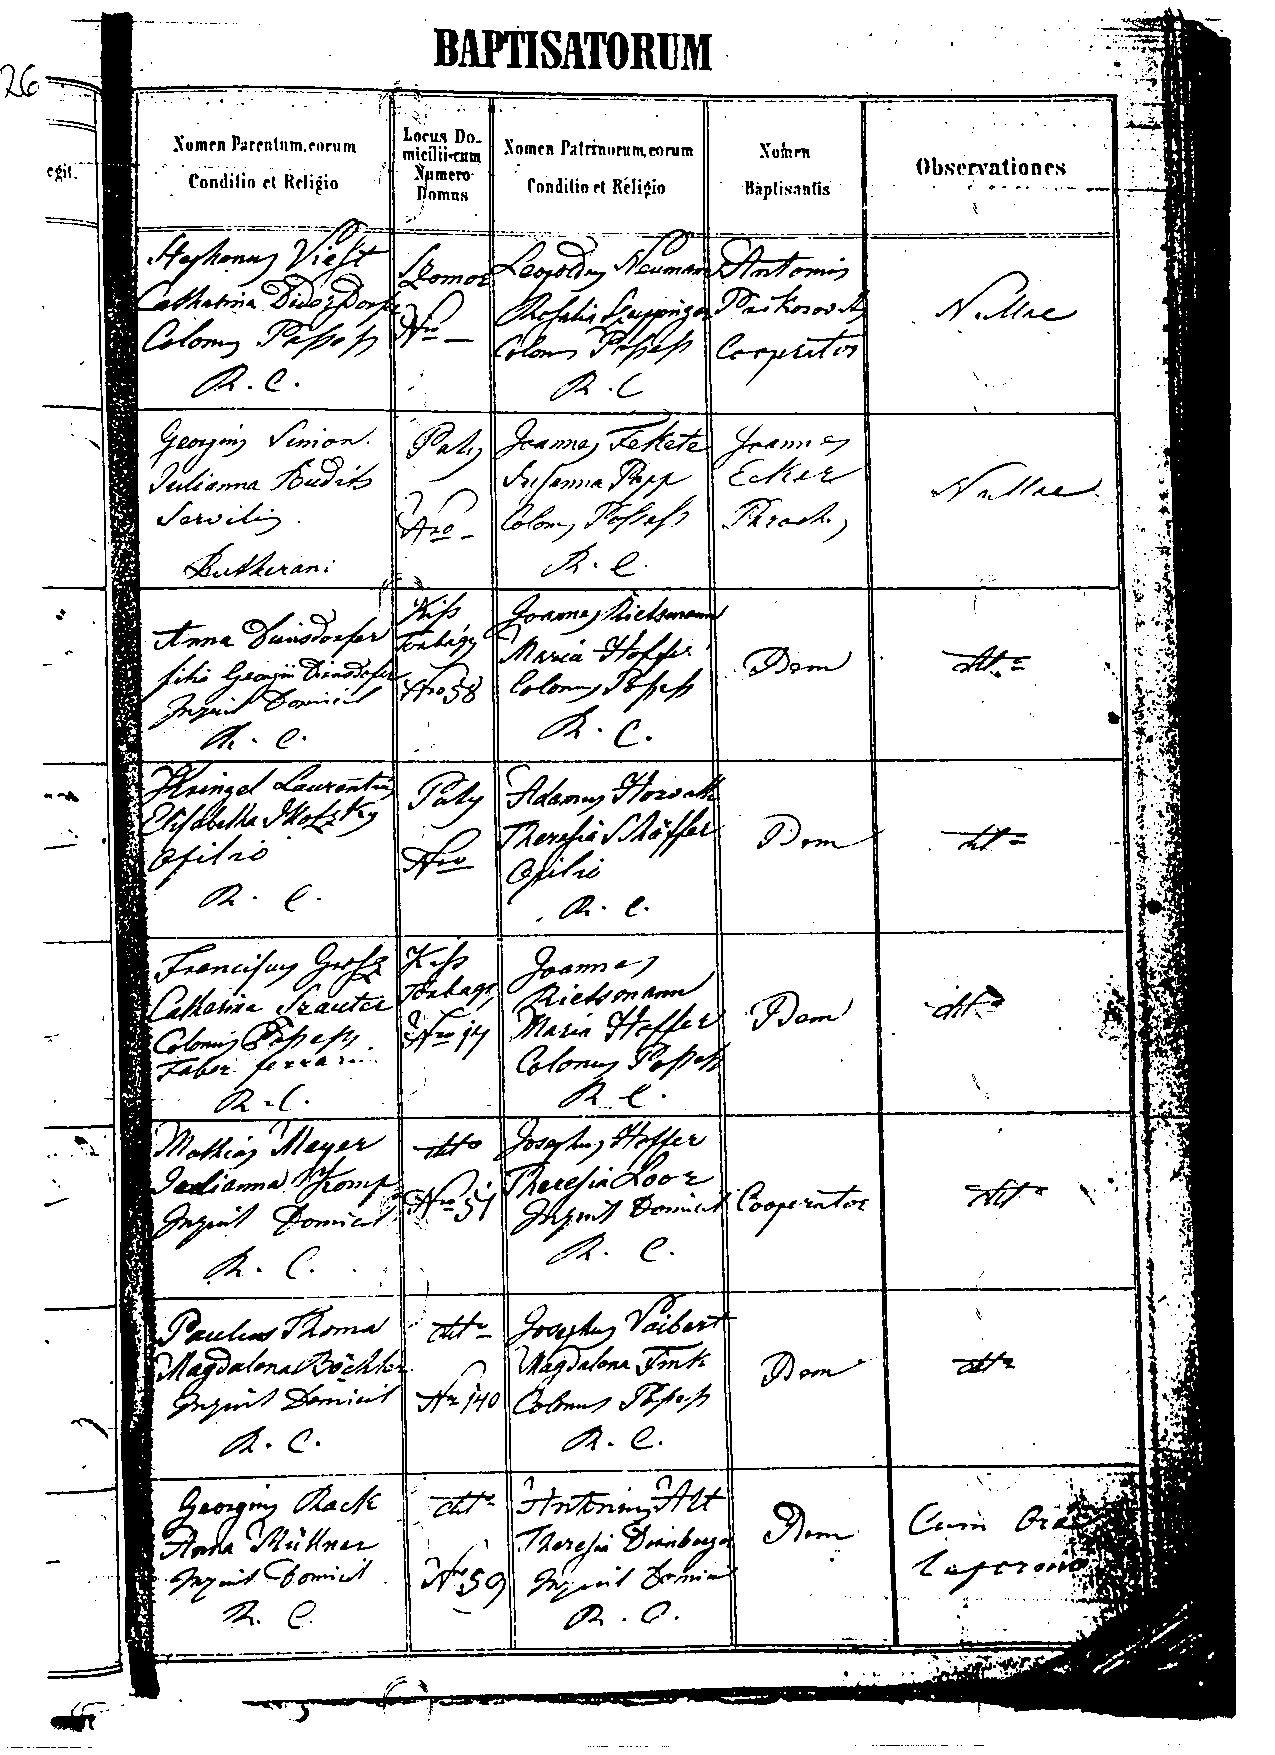 BAPTISATORUM
26
egit.
Nomen Parentum, eorum
Conditio et Religio
Locus Do-
micilii cum
Numero
Domus
Nomen Patrinorum, eorum
Conditio et Religio
Nomen
Baptisantis
Observationes
Stephanus
Catharina
Colonus Possess
R. C.
Nro —
Leopoldus Neumann
Rosalia
Colonus Possess
R. C
Antonius
Cooperator
Nullae
Georgius Simon.
Julianna Budits
Servilis
Lutherani
Paty
Nro -
Joannes Fekete
Susanna Papp
Colonus Possess
R. C.
Joannes
Ecker
Parochus
Nullae
Anna Diensdorfer
filia Georgii Diensdorfer
Inquil Domicil
R. C.
Kiss
Torbágy
Nro 58
Joannes Rietsmann
Maria Hoffer
Colonus Possess
R. C.
Dem
dtt=
Kringel Laurentius
Elisabetha
Opilio
R. C.
Paty
Nro
Adamus Horvath
Theresia Schäffer
Opilio
R. C.
Dem
dtt=
Franciscus Grosz
Catharina Trauter
Colonus Possess
Faber ferrari
R. C.
Kiss
Torbágy
Nro 14
Joannes
Rietsmann
Maria Hoffer
Colonus Possess
R. C.
Dem
dtt=
Mathias Mayer
Julianna
Inquil Domicil
R. C.
dtto
Nro 51
Josephus Hoffer
Theresia Loor
Inquil Domicil
R. C.
Cooperator
dtt=
Paulus Thoma
Magdalena Böchler
Inquil Domicil
R. C.
dtt=
Nr 140
Josephus Vaibert
Magdalena Fink
Colonus Possess
R. C.
Dem
dtt=
Georgius Rack
Anna Müllner
Inquil Domicil
R. C.
dtt=
Nro 59
Antonius Alt
Theresia Dienberger
Inquil Domicil
R. C.
Dem
Cum